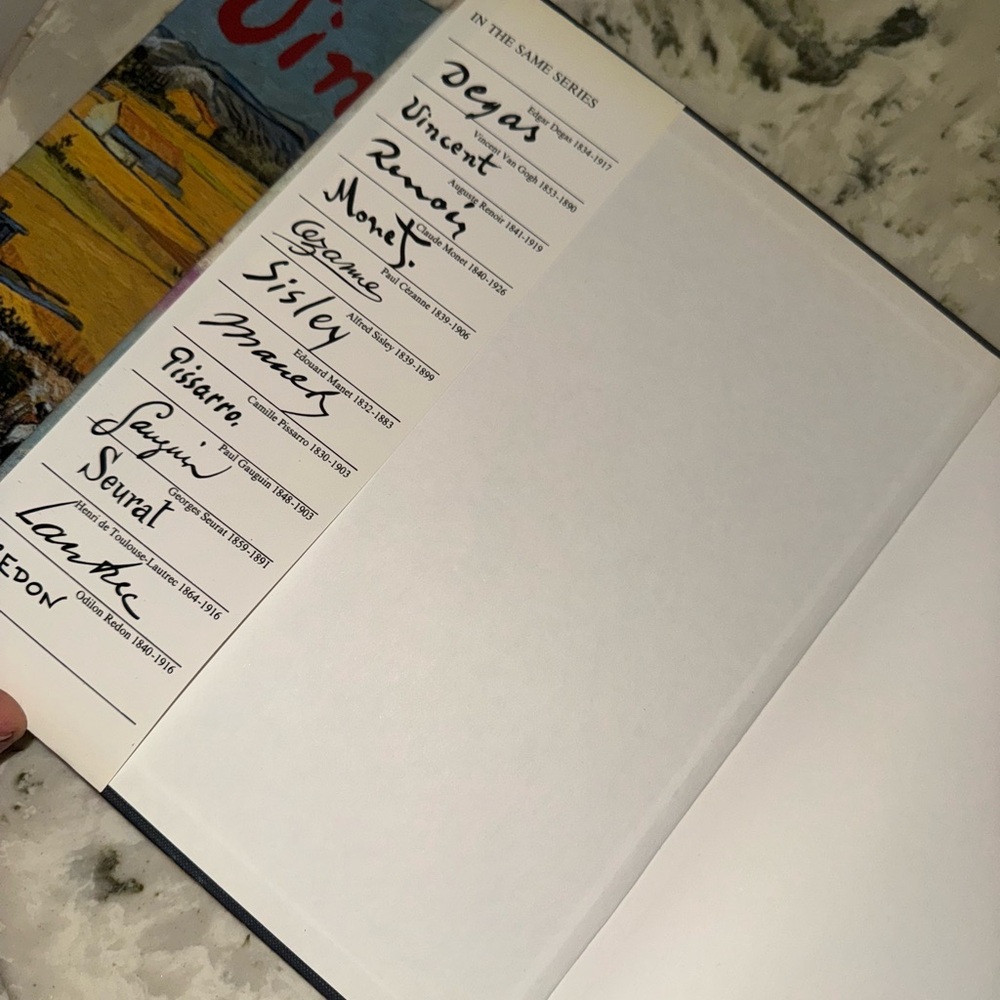 Vin
IN THE SAME SERIES
Degas
Edgar Degas 1834-1917
Vincent
Vincent Van Gogh 1853-1890
Renoir
Auguste Renoir 1841-1919
Monet.
Claude Monet 1840-1926
Cezanne
Paul Cézanne 1839-1906
Sisley
Alfred Sisley 1839-1899
Manet
Edouard Manet 1832-1883
Pissarro.
Camille Pissarro 1830-1903
Gauguin
Paul Gauguin 1848-1903
Seurat
Georges Seurat 1859-1891
Lautrec
Henri de Toulouse-Lautrec 1864-1916
EDON
Odilon Redon 1840-1916